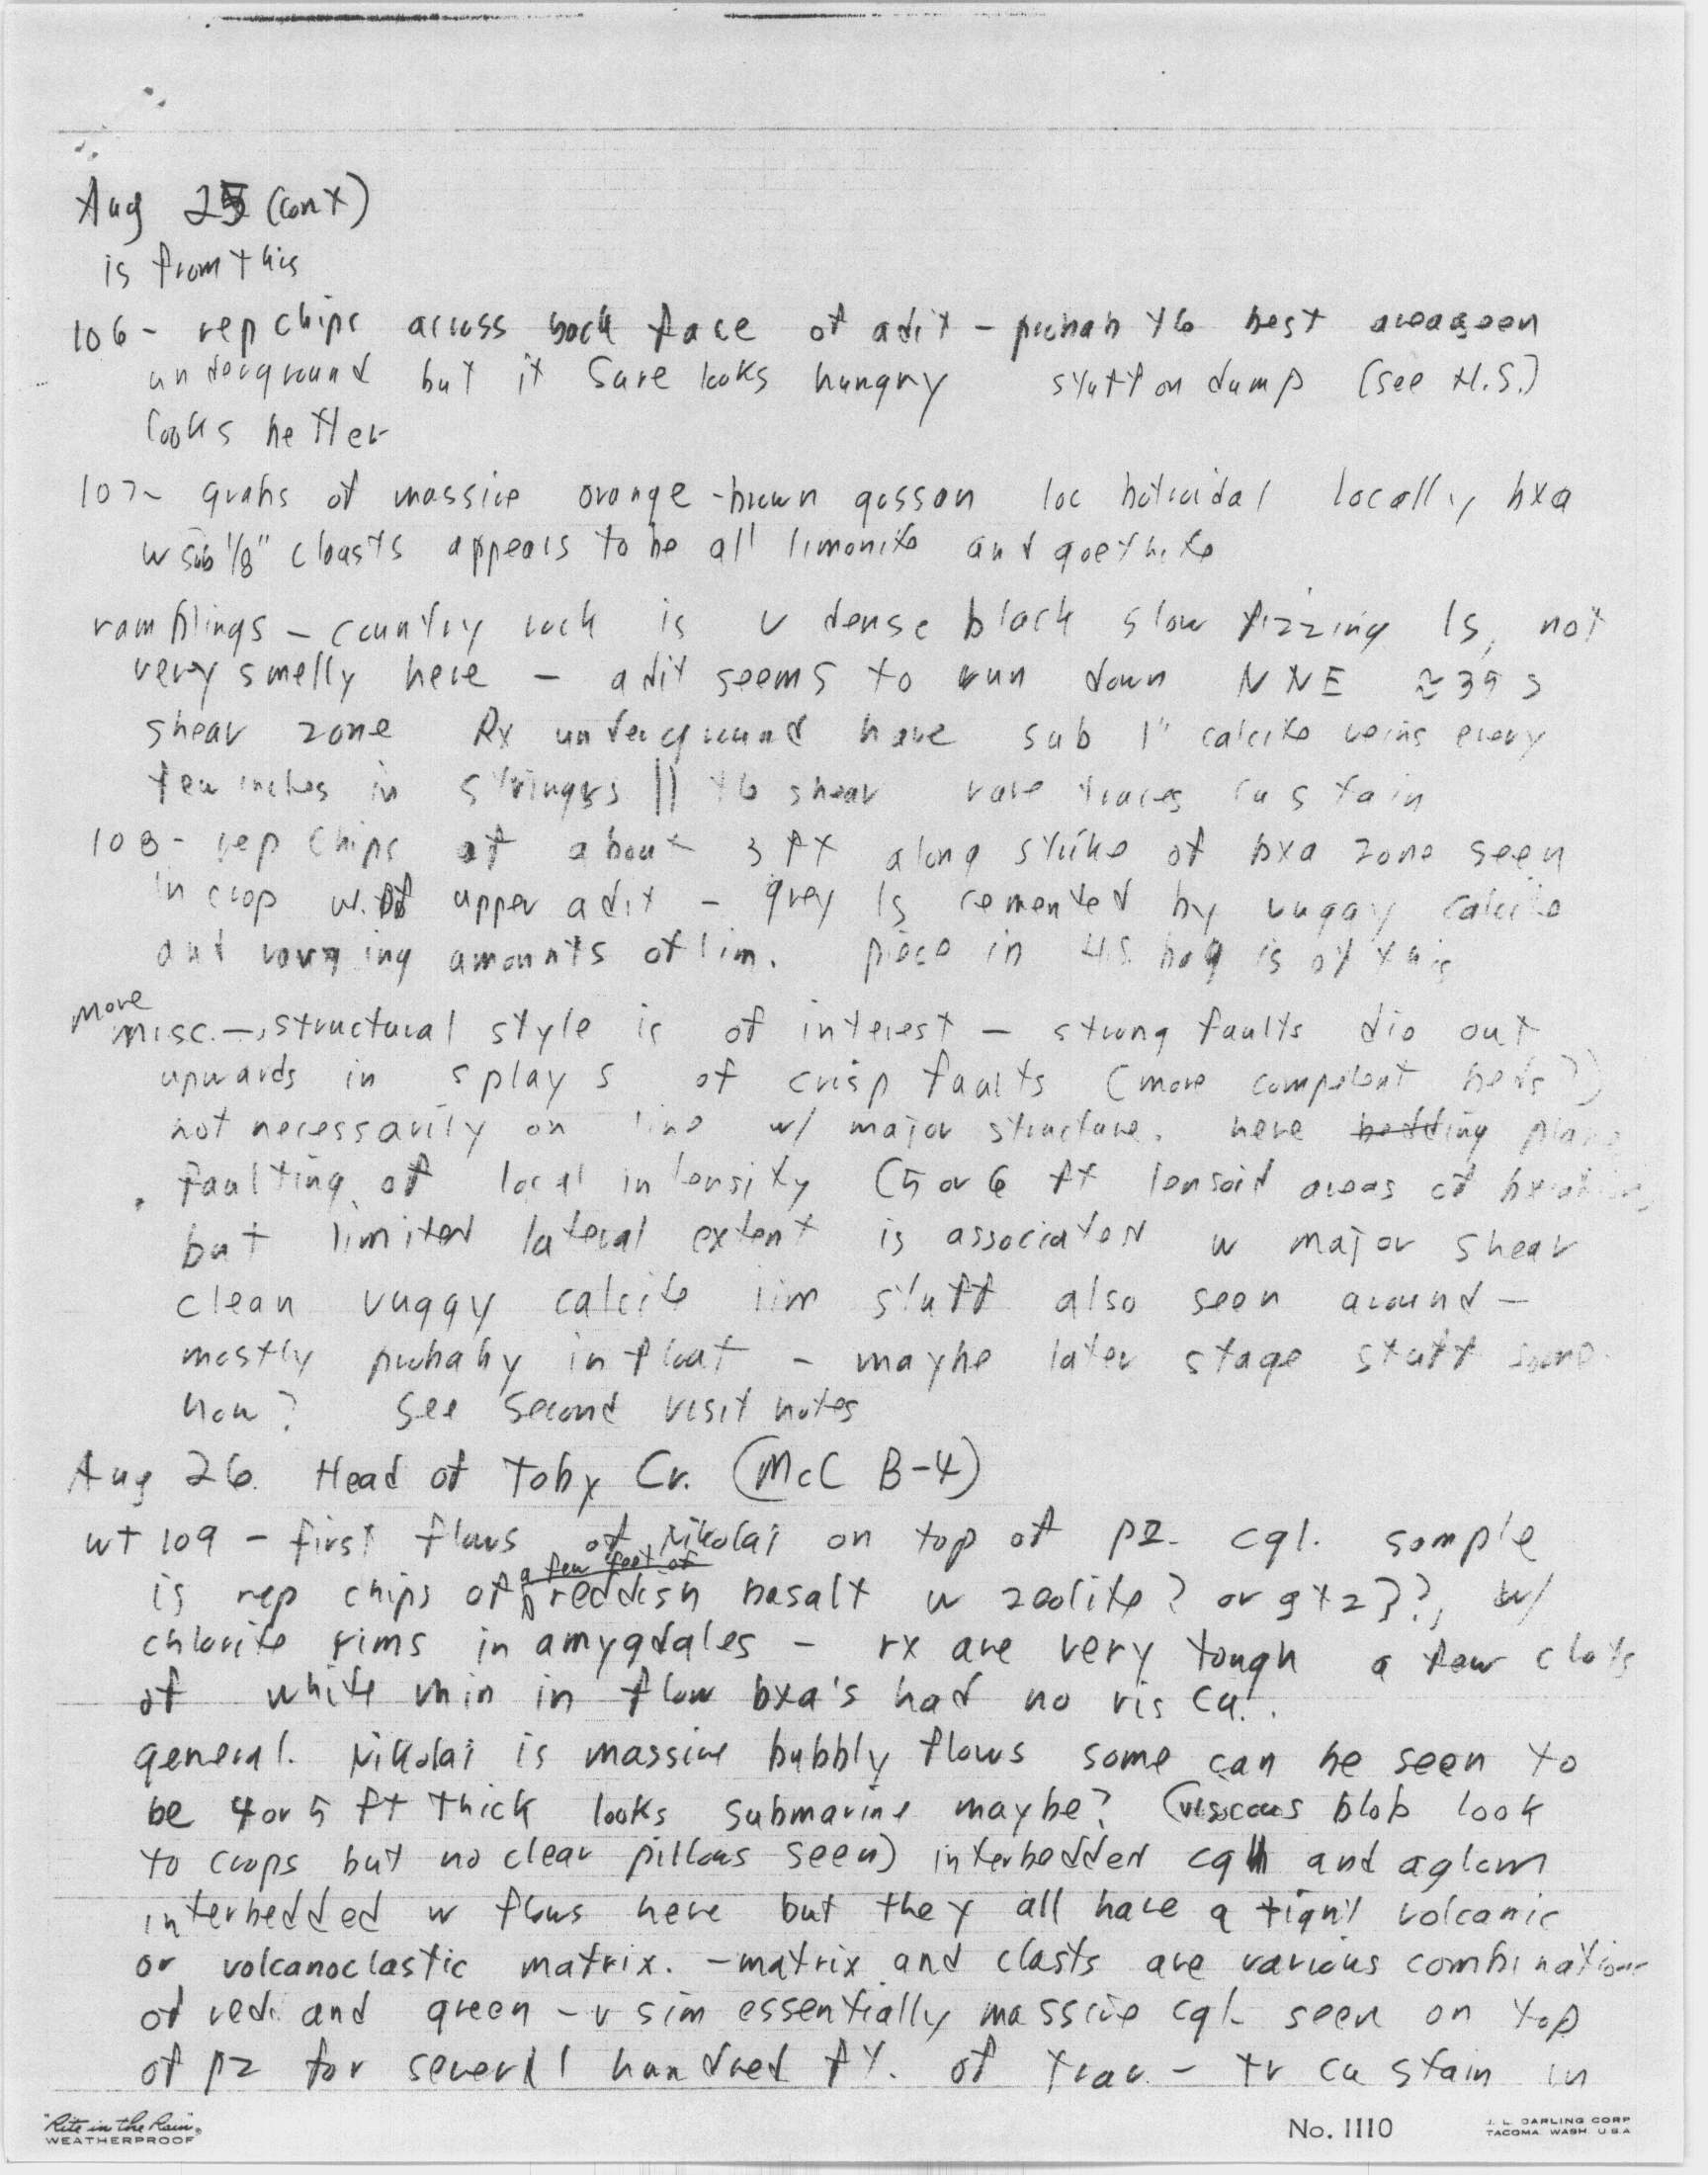 Aug 25 (cont)
is from this
106 - rep chips across back face of adit - probab the best area seen
underground but it sure looks hungry stuff on dump (see H.S.)
looks better
107 - grabs of massive orange-brown gossan loc botroidal locally bxa
w sub 1/8" clasts appears to be all limonite and goethite
ramblings - country rock is v dense black slow fizzing ls, not
very smelly here - adit seems to run down NNE ≈ 39 S
shear zone Rx underground have sub 1" calcite veins every
few inches in stringers || to shear rare traces cu stain
108 - rep chips of about 3 ft along strike of bxa zone seen
in crop w. of upper adit - grey ls cemented by vuggy calcite
and varying amounts of lim. piece in H.S. bag is of this
more
misc. - structural style is of interest - strong faults die out
upwards in splays of crisp faults (more competent beds?)
not necessarily on line w/ major structure. here bedding plane
faulting of local intensity (5 or 6 ft lensoid areas of bxation)
but limited lateral extent is associated w major shear
clean vuggy calcite lim stuff also seen around -
mostly probaby in float - maybe later stage stuff some
how? see second visit notes
Aug 26. Head of Toby Cr. (McC B-4)
WT 109 - first flows of Nikolai on top of PZ. cgl. sample
a few feet of
is rep chips of reddish basalt w zeolite? or qtz??, w/
chlorite rims in amygdales - rx are very tough a few clots
of white min in flow bxa's had no vis cu.
general. Nikolai is massive bubbly flows some can be seen to
be 4 or 5 ft thick looks submarine maybe? (viscous blob look
to crops but no clear pillows seen) interbedded cgl and aglom
interbedded w flows here but they all have a tight volcanic
or volcanoclastic matrix. - matrix and clasts are various combinations
of red and green - v sim essentially massive cgl seen on top
of PZ for several hundred ft. of trav - tr cu stain in
"Rite in the Rain"
WEATHERPROOF
No. 1110
J. L. DARLING CORP
TACOMA WASH U.S.A